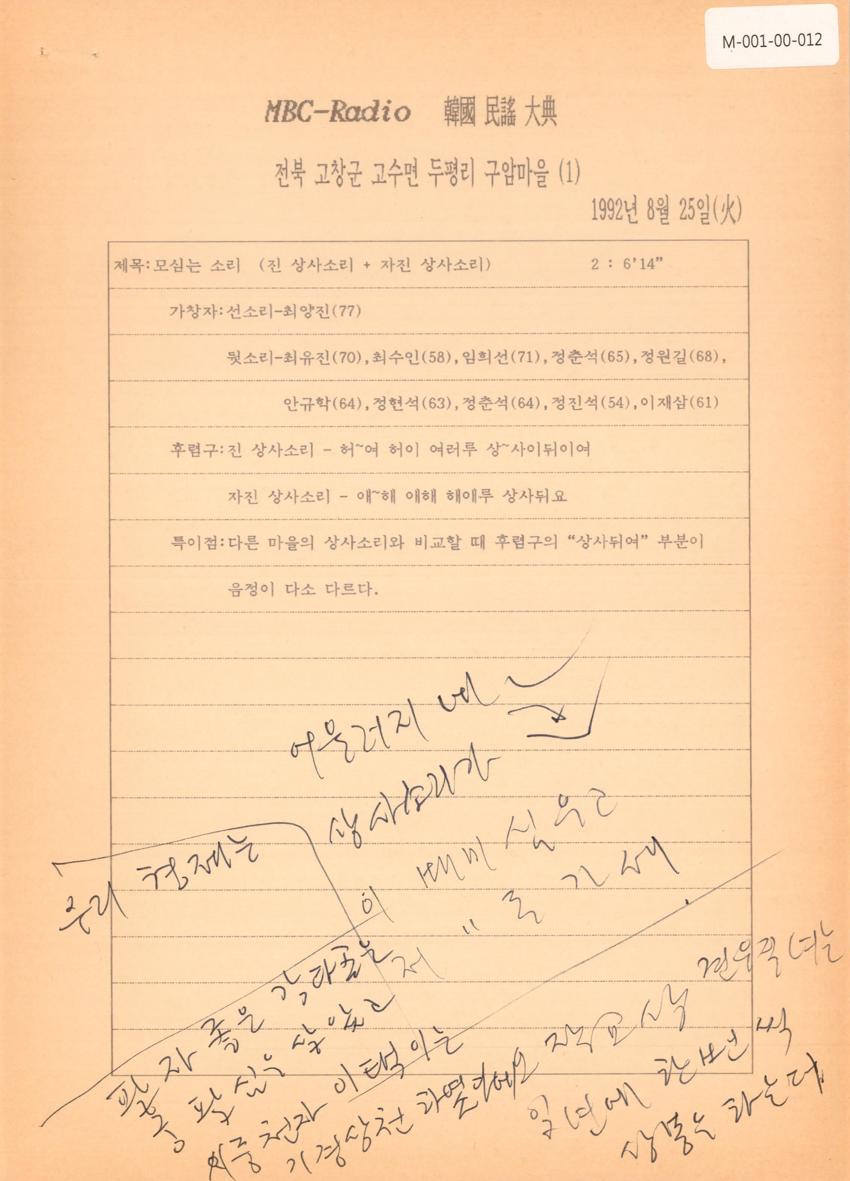 M-001-00-012
MBC-Radio 韓國 民謠 大典
전북 고창군 고수면 두평리 구암마을 (1)
1992년 8월 25일(火)
제목:모심는 소리 (진 상사소리 + 자진 상사소리) 2 : 6'14"
가창자:선소리-최양진(77)
뒷소리-최유진(70),최수인(58),임희선(71),정춘석(65),정원길(68),
안규학(64),정현석(63),정춘석(64),정진석(54),이재삼(61)
후렴구:진 상사소리 - 허~여 허이 여러루 상~사이뒤이여
자진 상사소리 - 얘~해 애해 해에루 상사뒤요
특이점:다른 마을의 상사소리와 비교할 때 후렴구의 "상사뒤여" 부분이
음정이 다소 다르다.
어울러지네
상사소리가
이 배미 심우고
저 " 로 가세
우리 형제는
팔자 좋은
이태백이는
기경상천
견우직녀는
일년에 한번씩
상봉은 하는데